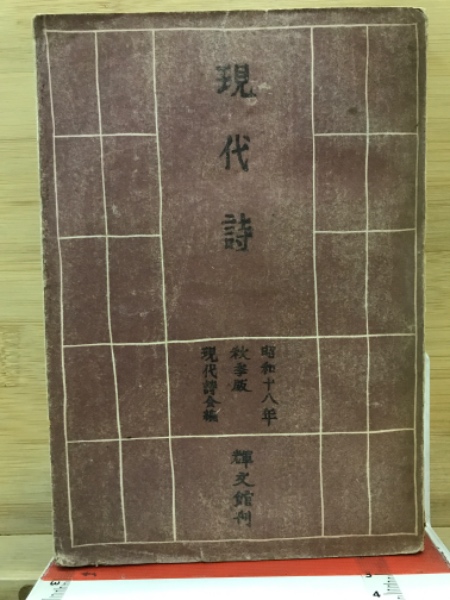 現代詩
昭和十八年
秋季版
現代詩会編
輝文館刊
3
3
4